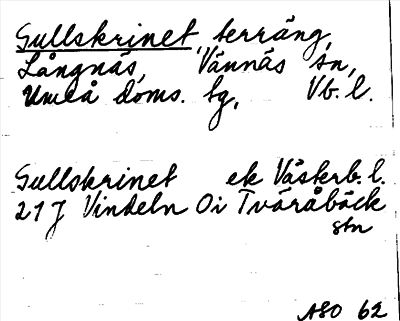 Gullskrinet, terräng,
Långnäs, Vännäs sn,
Umeå doms. tg, Vb. l.
Gullskrinet ek Västerb. l.
21 J Vindeln Oi Tväråbäck
stn
ASO 62